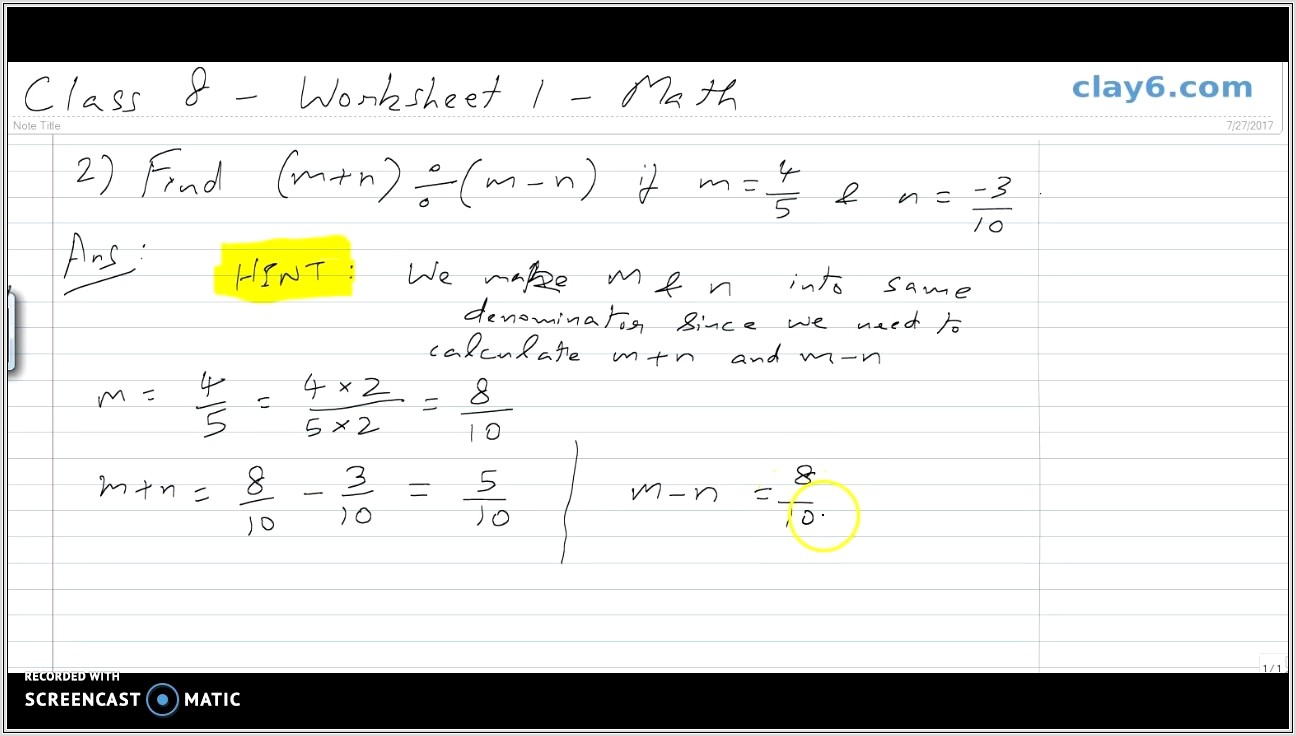 Class 8 - Worksheet 1 - Math
clay6.com
Note Title
7/27/2017
2) Find (m+n) ÷ (m-n) if m = 4/5 & n = -3/10.
Ans:
HINT: We make m & n into same
denominator since we need to
calculate m+n and m-n
m = 4/5 = 4×2/5×2 = 8/10
m+n = 8/10 - 3/10 = 5/10
m-n = 8/10
1/1
RECORDED WITH
SCREENCAST MATIC